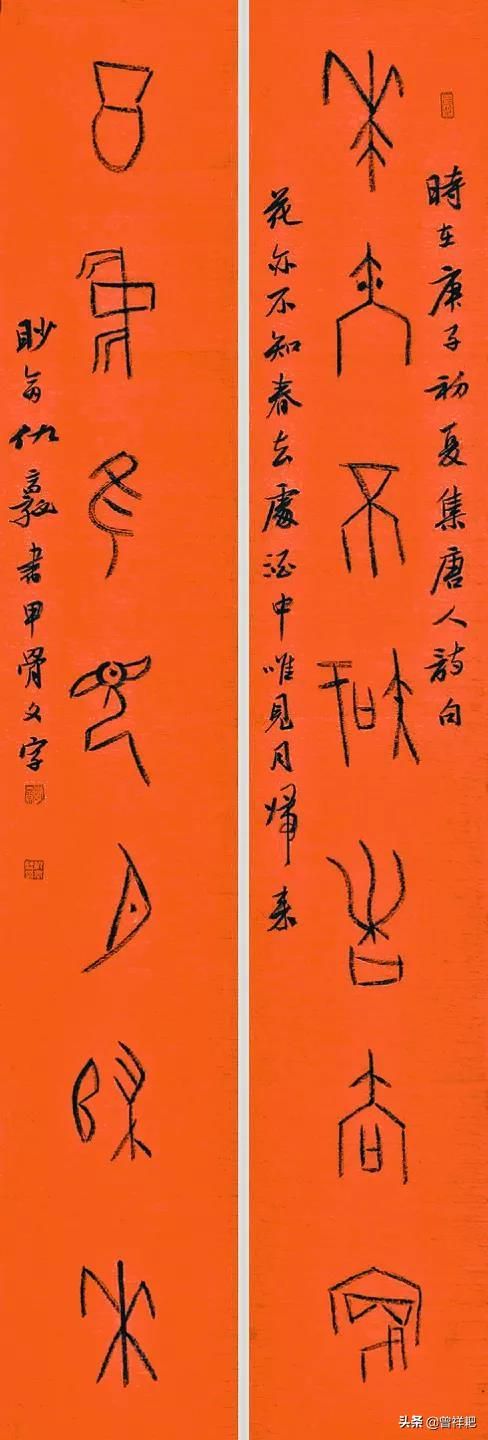 時在庚子初夏集唐人詩句
花亦不知春去處
花亦不知春去處酒中唯見月歸来
酒中唯見月歸來
書甲骨文字
头条 @曾祥耙